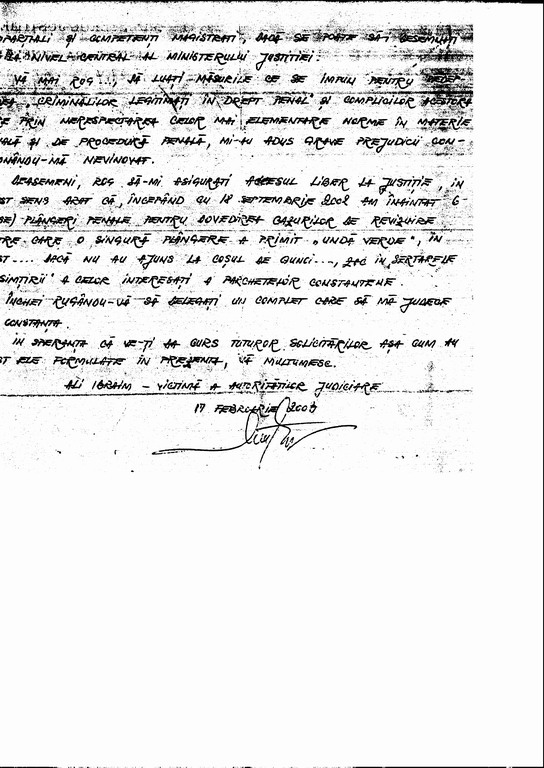 MPARȚIALI ȘI COMPETENȚI MAGISTRAȚI, DACĂ SE POATE SĂ-I DESEMNAȚI
LA NIVEL CENTRAL AL MINISTERULUI JUSTIȚIEI.
VĂ MAI ROG..., SĂ LUAȚI MĂSURILE CE SE IMPUN PENTRU
CRIMINALILOR LEGITIMAȚI ÎN DREPT PENAL" ȘI COMPLICILOR ACESTORA
E PRIN NERESPECTAREA CELOR MAI ELEMENTARE NORME ÎN MATERIE
ALĂ ȘI DE PROCEDURĂ PENALĂ, MI-AU ADUS GRAVE PREJUDICII CON-
NÂNDU-MĂ NEVINOVAT.
DEASEMENI, ROG SĂ-MI ASIGURAȚI ACCESUL LIBER LA JUSTIȚIE, ÎN
ST SENS ARĂT CĂ, ÎNCEPÂND CU 18 SEPTEMBRIE 2002 AM ÎNAINTAT 6-
SE) PLÂNGERI PENALE PENTRU DOVEDIREA CAZURILOR DE REVIZUIRE
TRE CARE O SINGURĂ PLÂNGERE A PRIMIT „UNDĂ VERDE", ÎN
ST.... DACĂ NU AU AJUNS LA COȘUL DE GUNOI..., ZAC ÎN „SERTARELE
SIMȚIRII" A CELOR INTERESAȚI A PARCHETELOR CONSTANȚENE.
ÎNCHEI RUGÂNDU-VĂ SĂ DELEGAȚI UN COMPLET CARE SĂ MĂ JUDECE
CONSTANȚA.
ÎN SPERANȚA CĂ VE-ȚI DA CURS TUTUROR SOLICITĂRILOR AȘA CUM AU
ST ELE FORMULATE ÎN PREZENTA, VĂ MULȚUMESC.
ALI IBRAIM – VICTIMĂ A AUTORITĂȚILOR JUDICIARE
17 FEBRUARIE